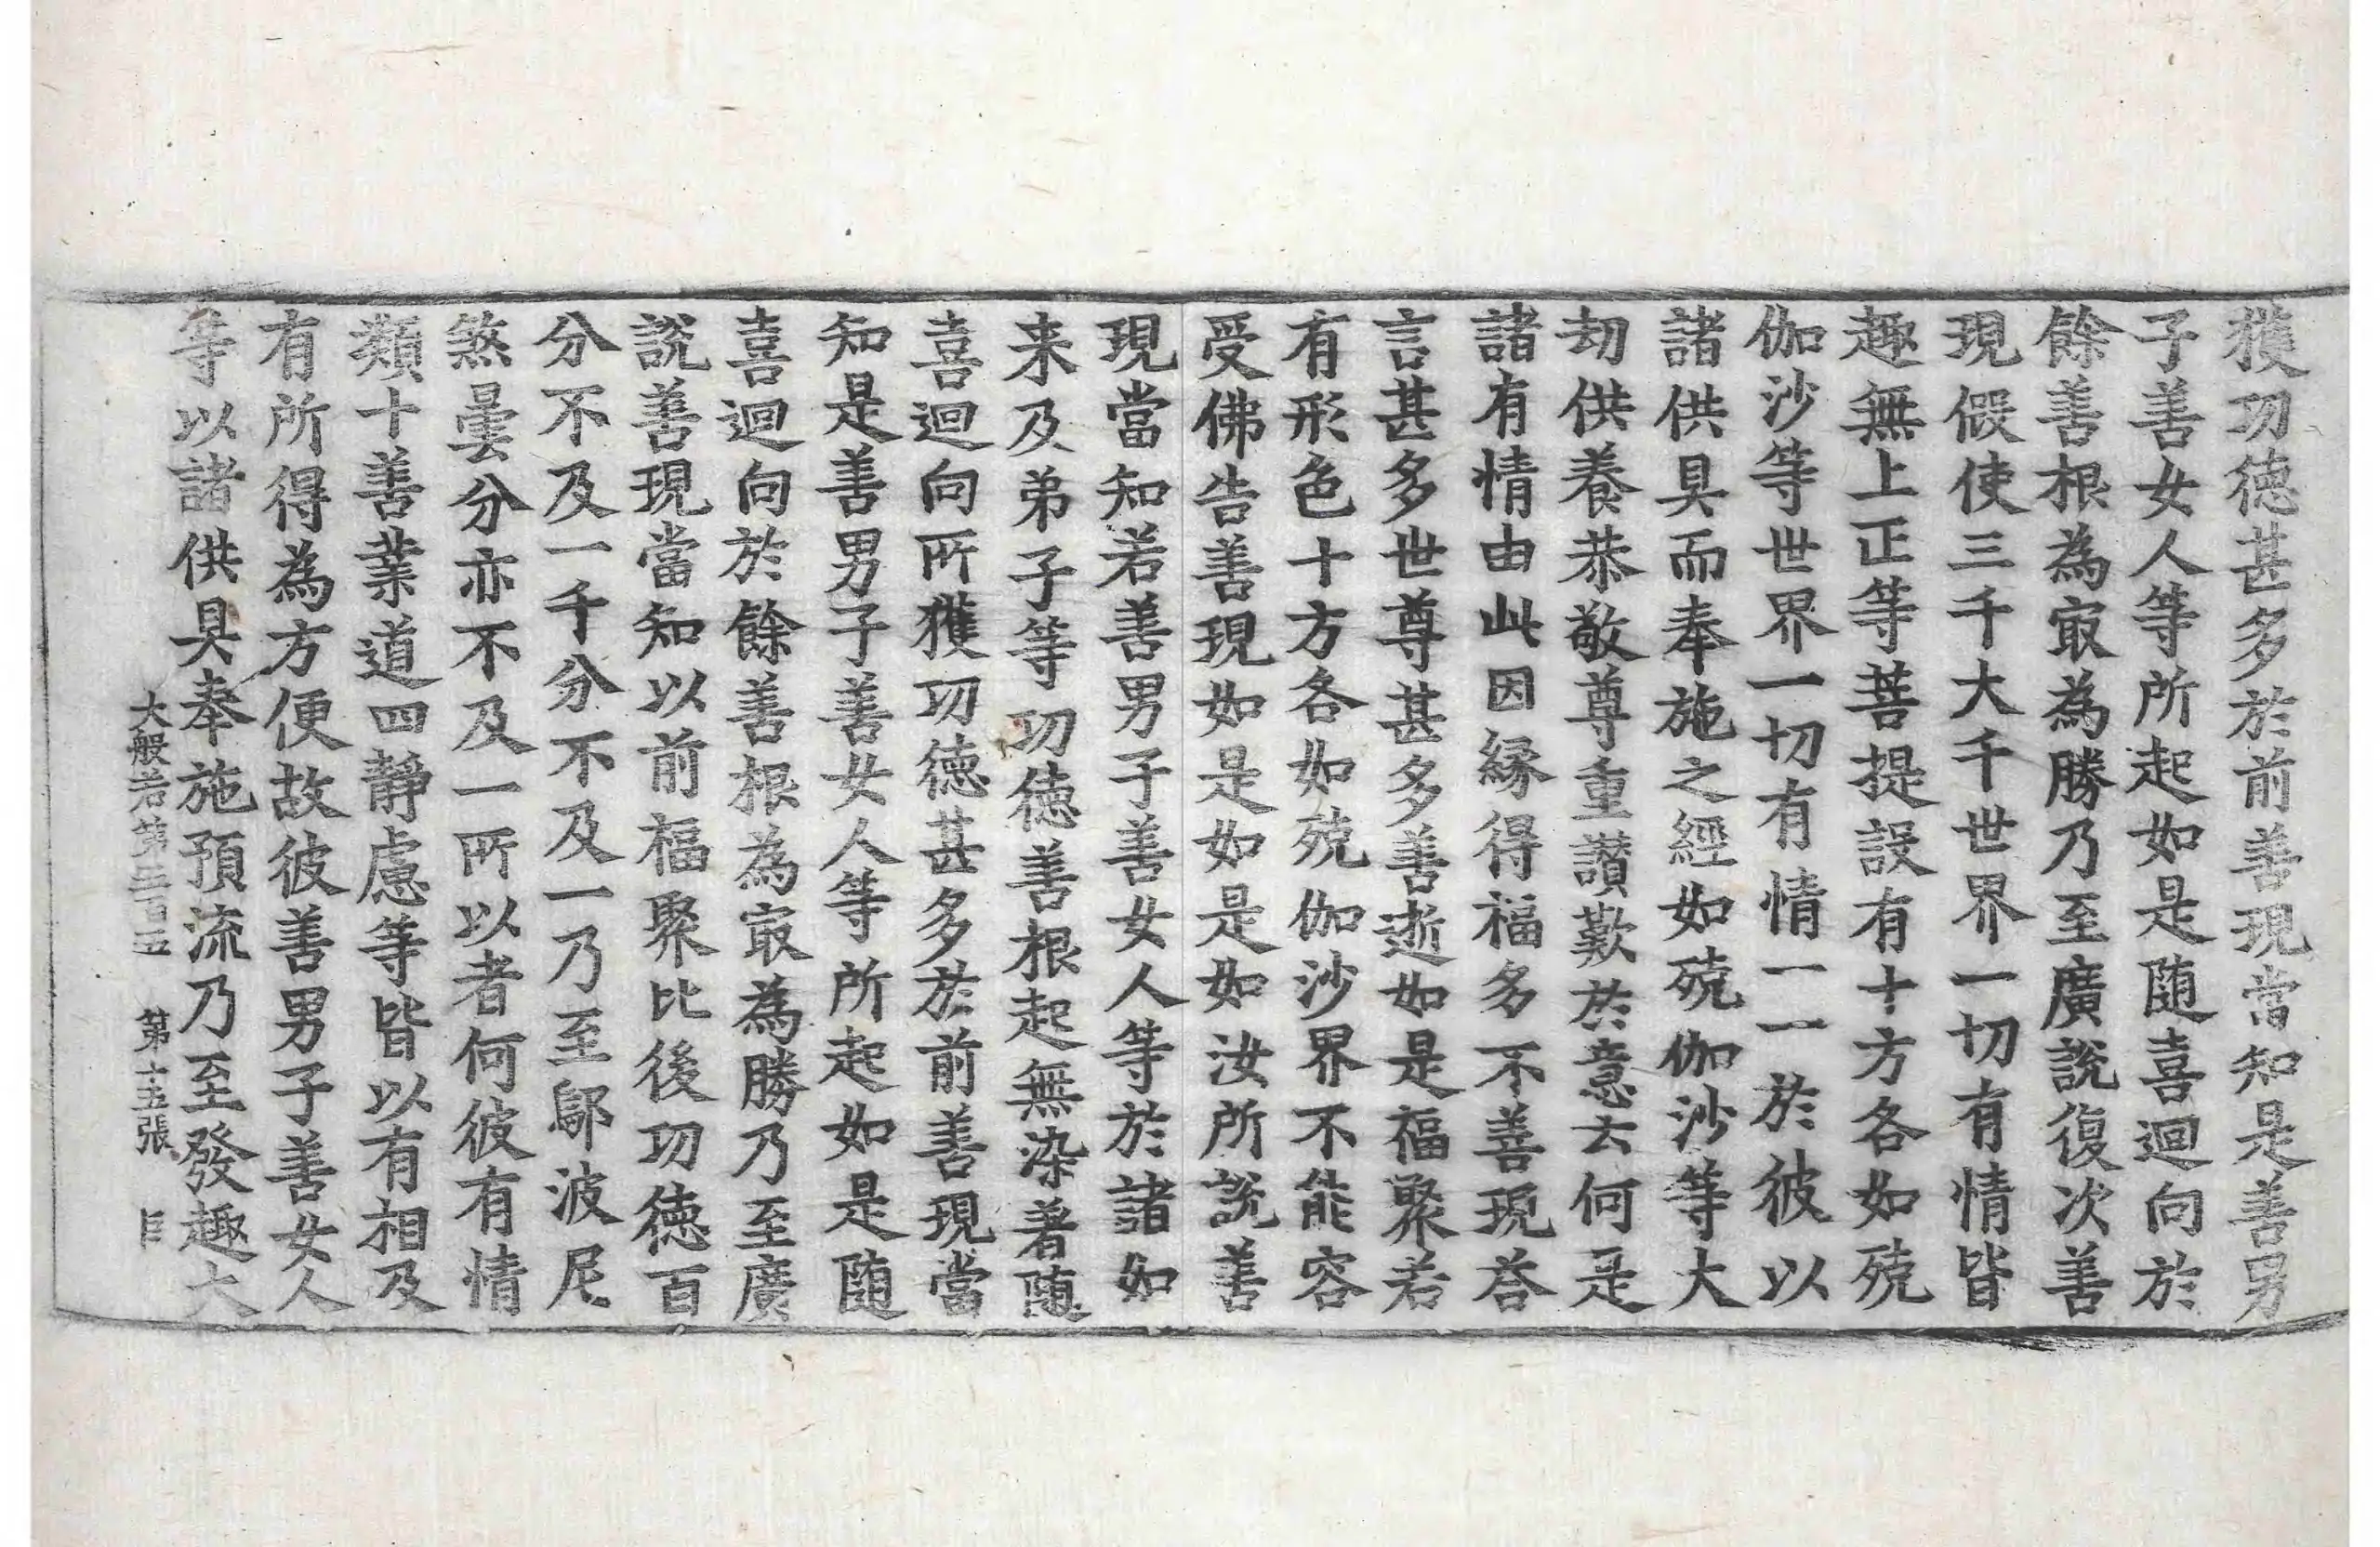 獲功徳甚多於前善現當知是善男
子善女人等所起如是随喜迴向於
餘善根為㝡為勝乃至廣說復次善
現假使三千大千世界一切有情皆
趣無上正等菩提設有十方各如殑
伽沙等世界一切有情一一於彼以
諸供具而奉施之經如殑伽沙等大
劫供養恭敬尊重讃歎於意云何是
諸有情由此因縁得福多不善現荅
言甚多世尊甚多善逝如是福聚若
有形色十方各如殑伽沙界不能容
受佛告善現如是如是如汝所說善
現當知若善男子善女人等於諸如
来及弟子等功徳善根起無染著随
喜迴向所獲功徳甚多於前善現當
知是善男子善女人等所起如是随
喜迴向於餘善根為㝡為勝乃至廣
說善現當知以前福聚比後功徳百
分不及一千分不及一乃至鄔波尼
煞曇分亦不及一所以者何彼有情
類十善業道四靜慮等皆以有相及
有所得為方便故彼善男子善女人
等以諸供具奉施預流乃至發趣大
大般若第三百五 第十五張